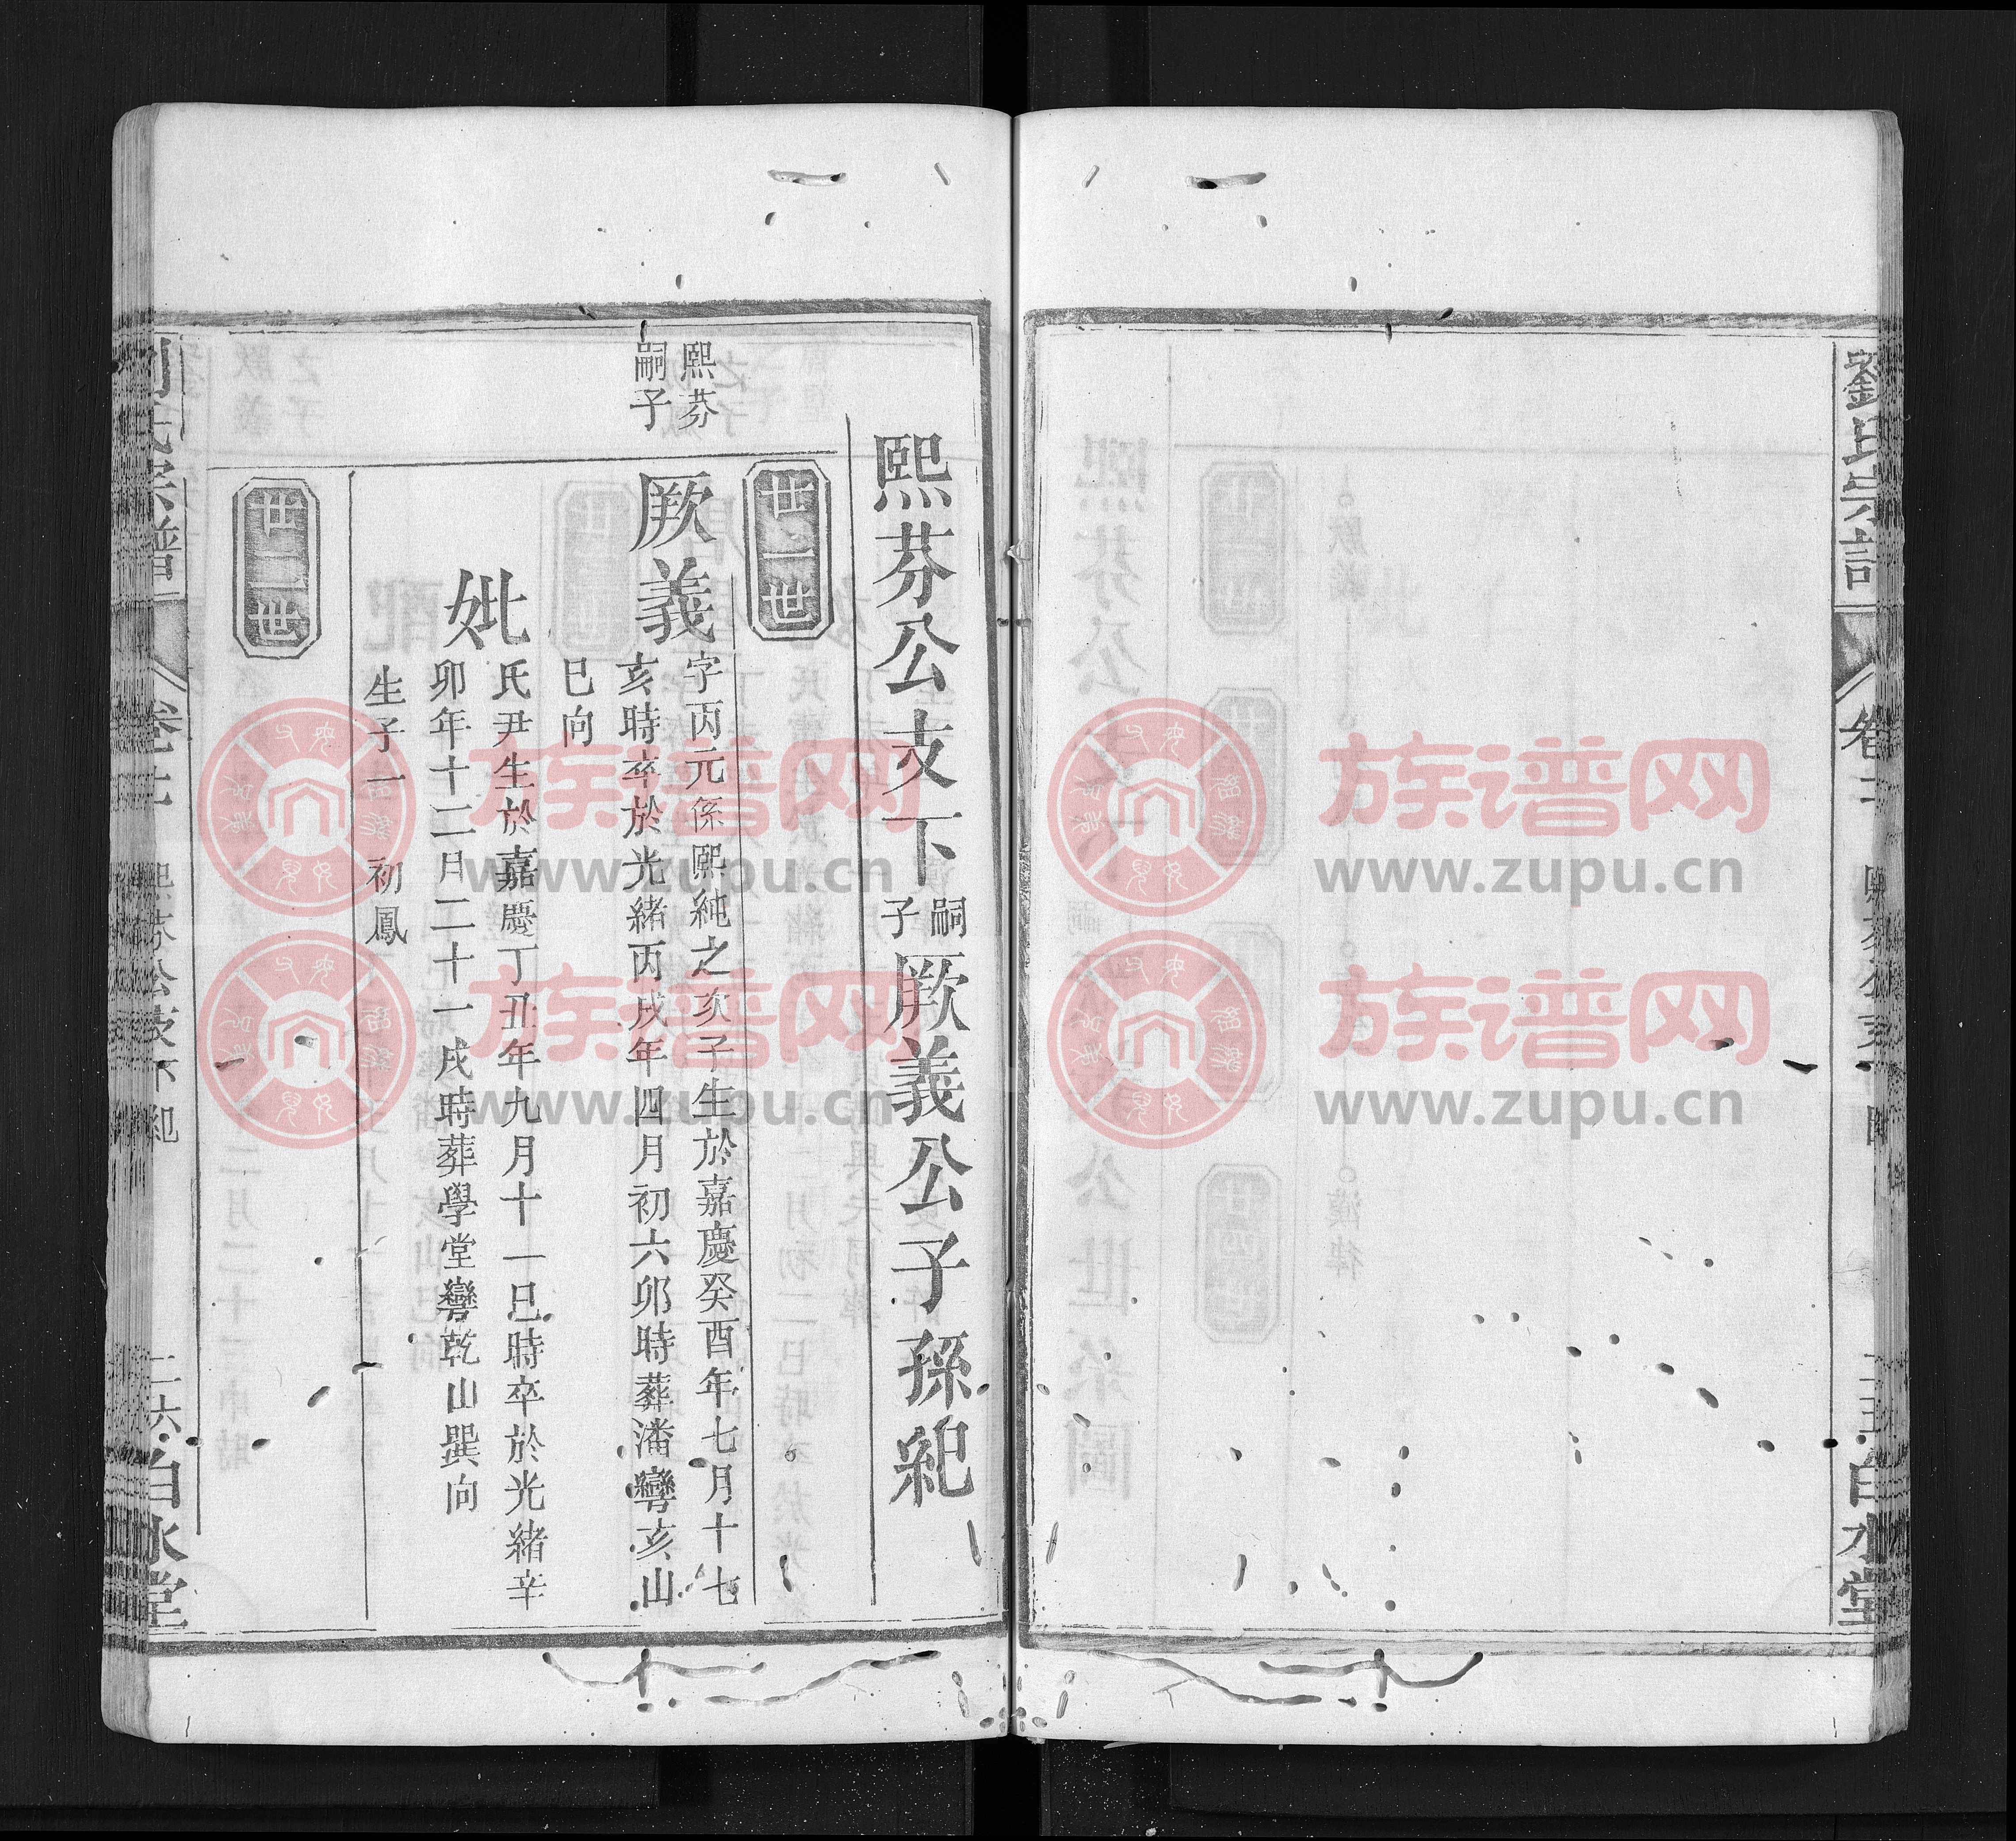 劉氏宗譜
卷十
熙芬公支下
二五
白水堂
熙芬公支下
嗣子
厥義公子孫紀
廿一世
熙芬
嗣子
厥義
字丙元係熙純之次子生於嘉慶癸酉年七月十七
亥時卒於光緒丙戌年四月初六卯時葬潘彎亥山
巳向
妣
氏尹生於嘉慶丁丑年九月十一巳時卒於光緒辛
卯年十二月二十一戌時葬學堂彎乾山巽向
生子一 初鳳
廿二世
劉氏宗譜
熙芬公支下紀
二六
白水堂
族谱网
www.zupu.cn
族谱网
www.zupu.cn
族谱网
www.zupu.cn
族谱网
www.zupu.cn